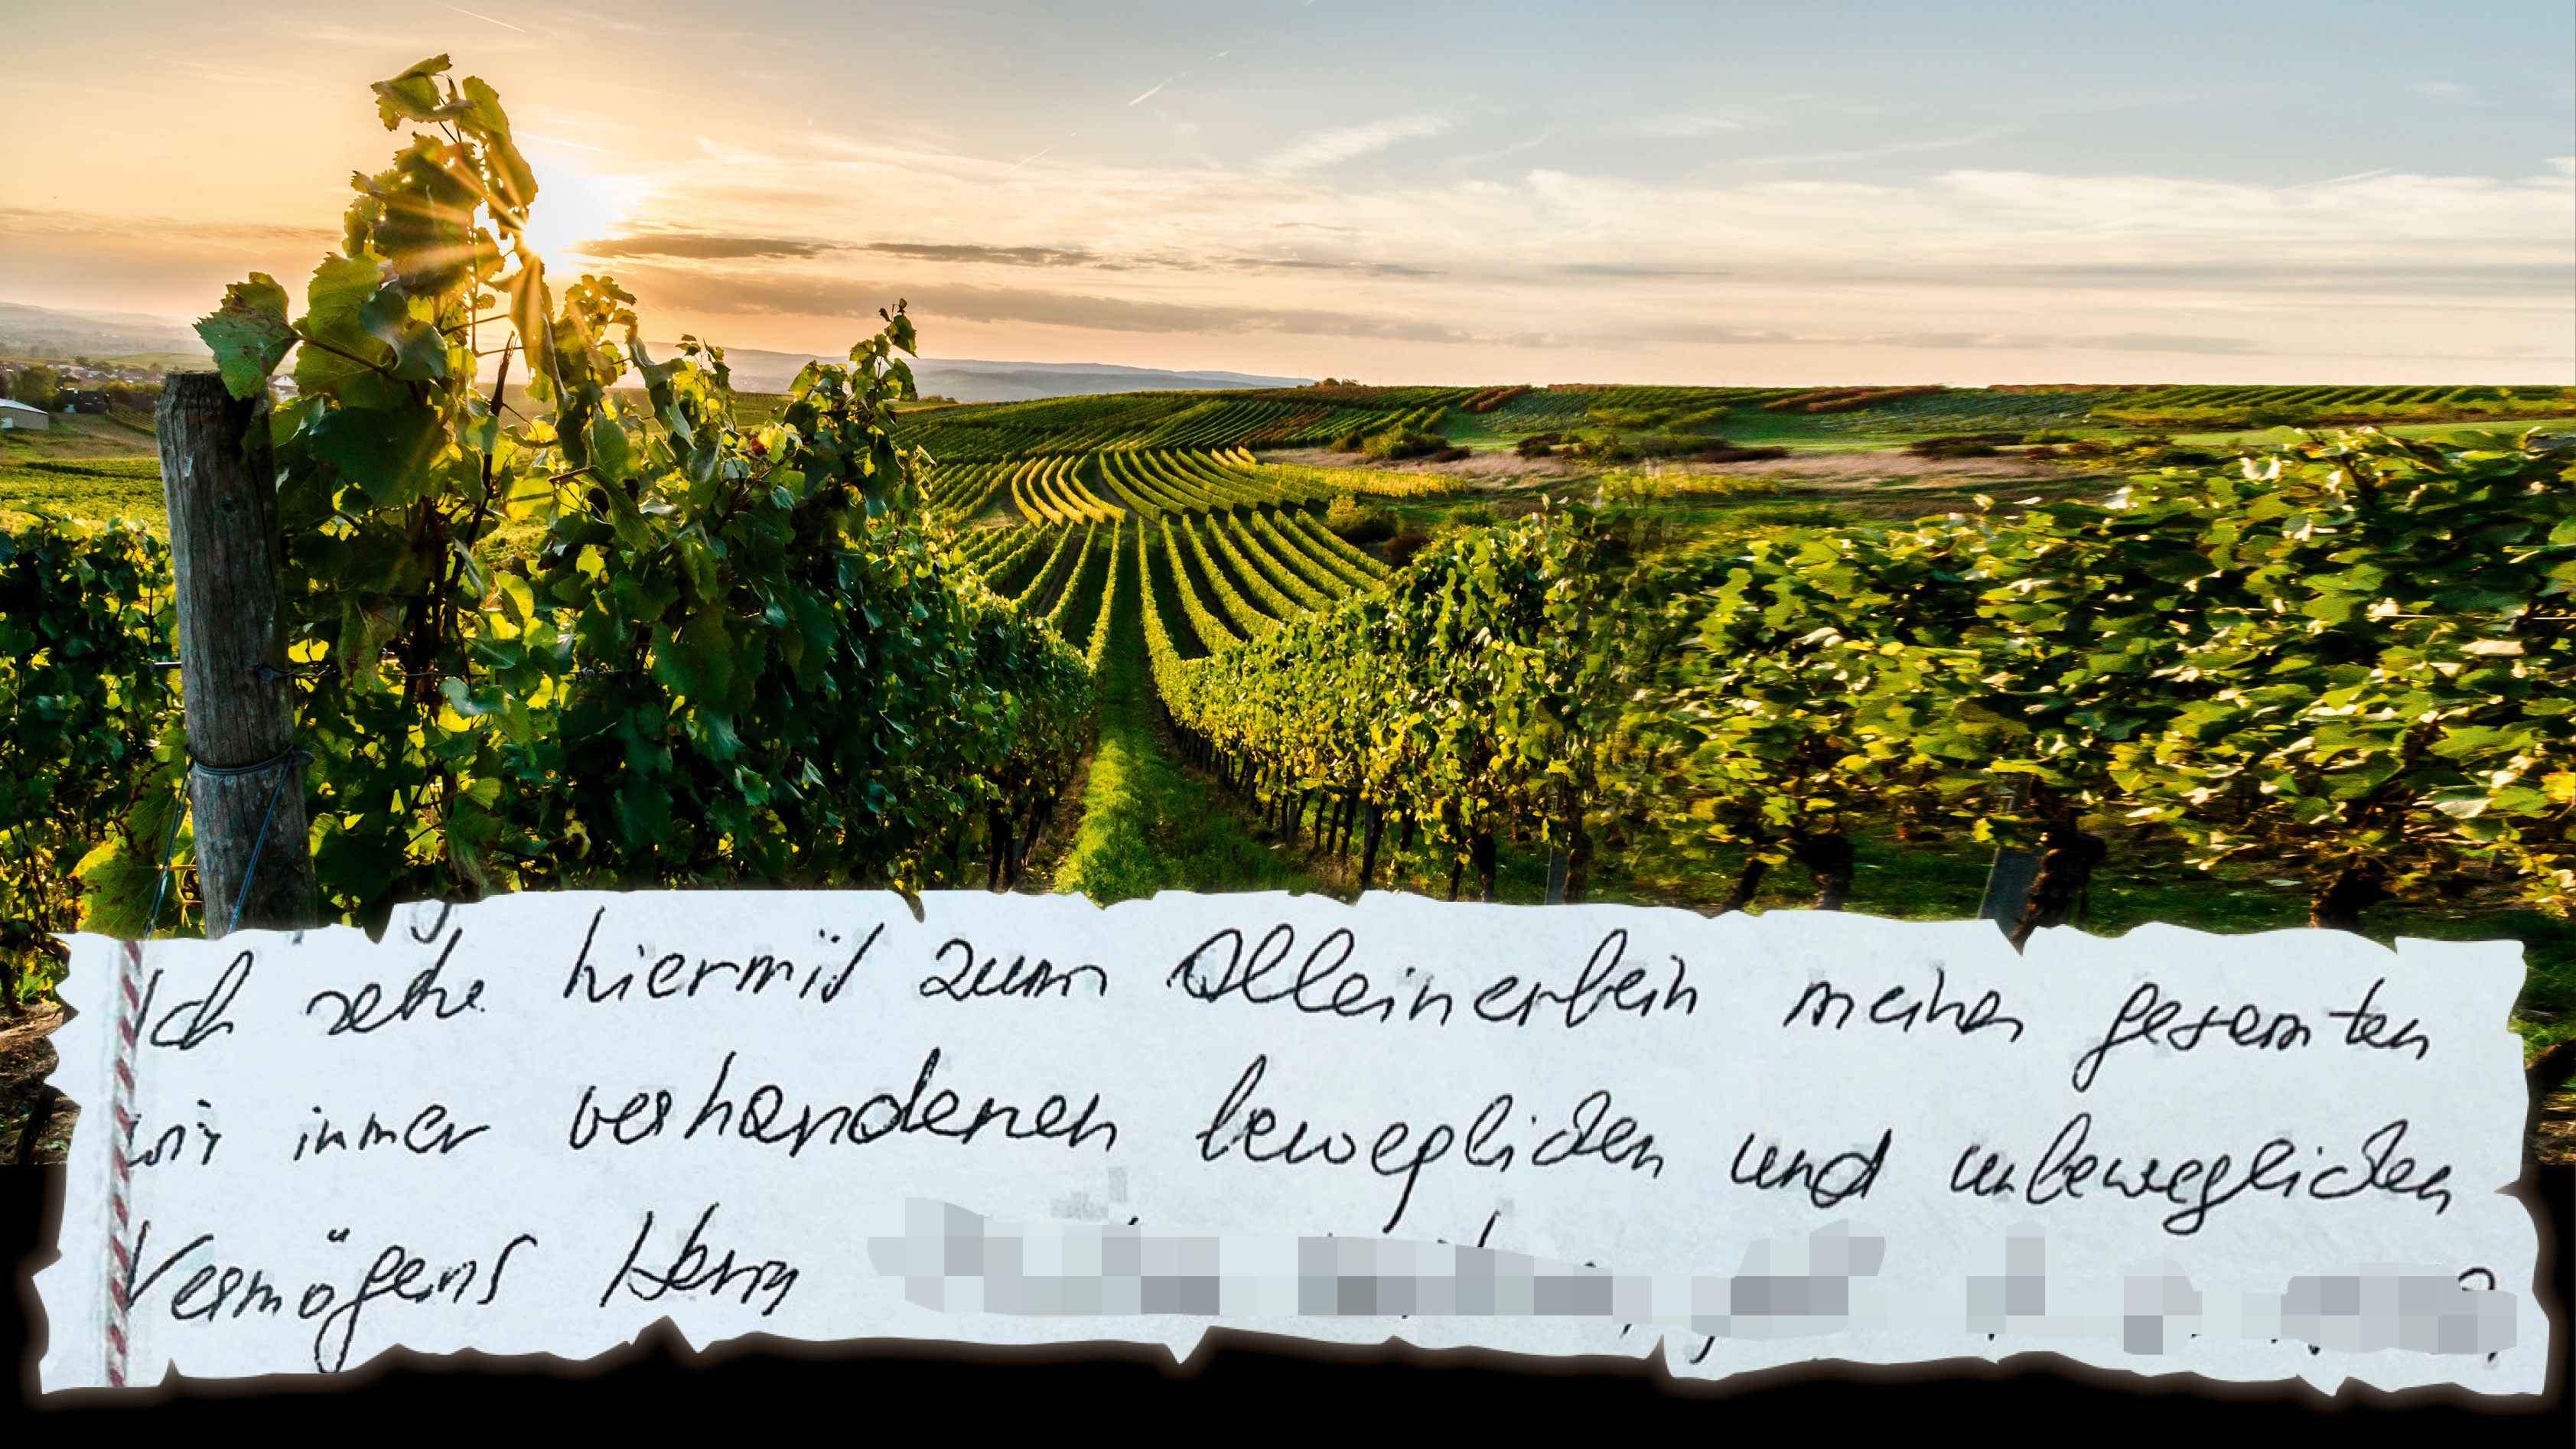 Ich setze hiermit zum Alleinerben meines gesamten
wie immer vorhandenen beweglichen und unbeweglichen
Vermögens Herrn